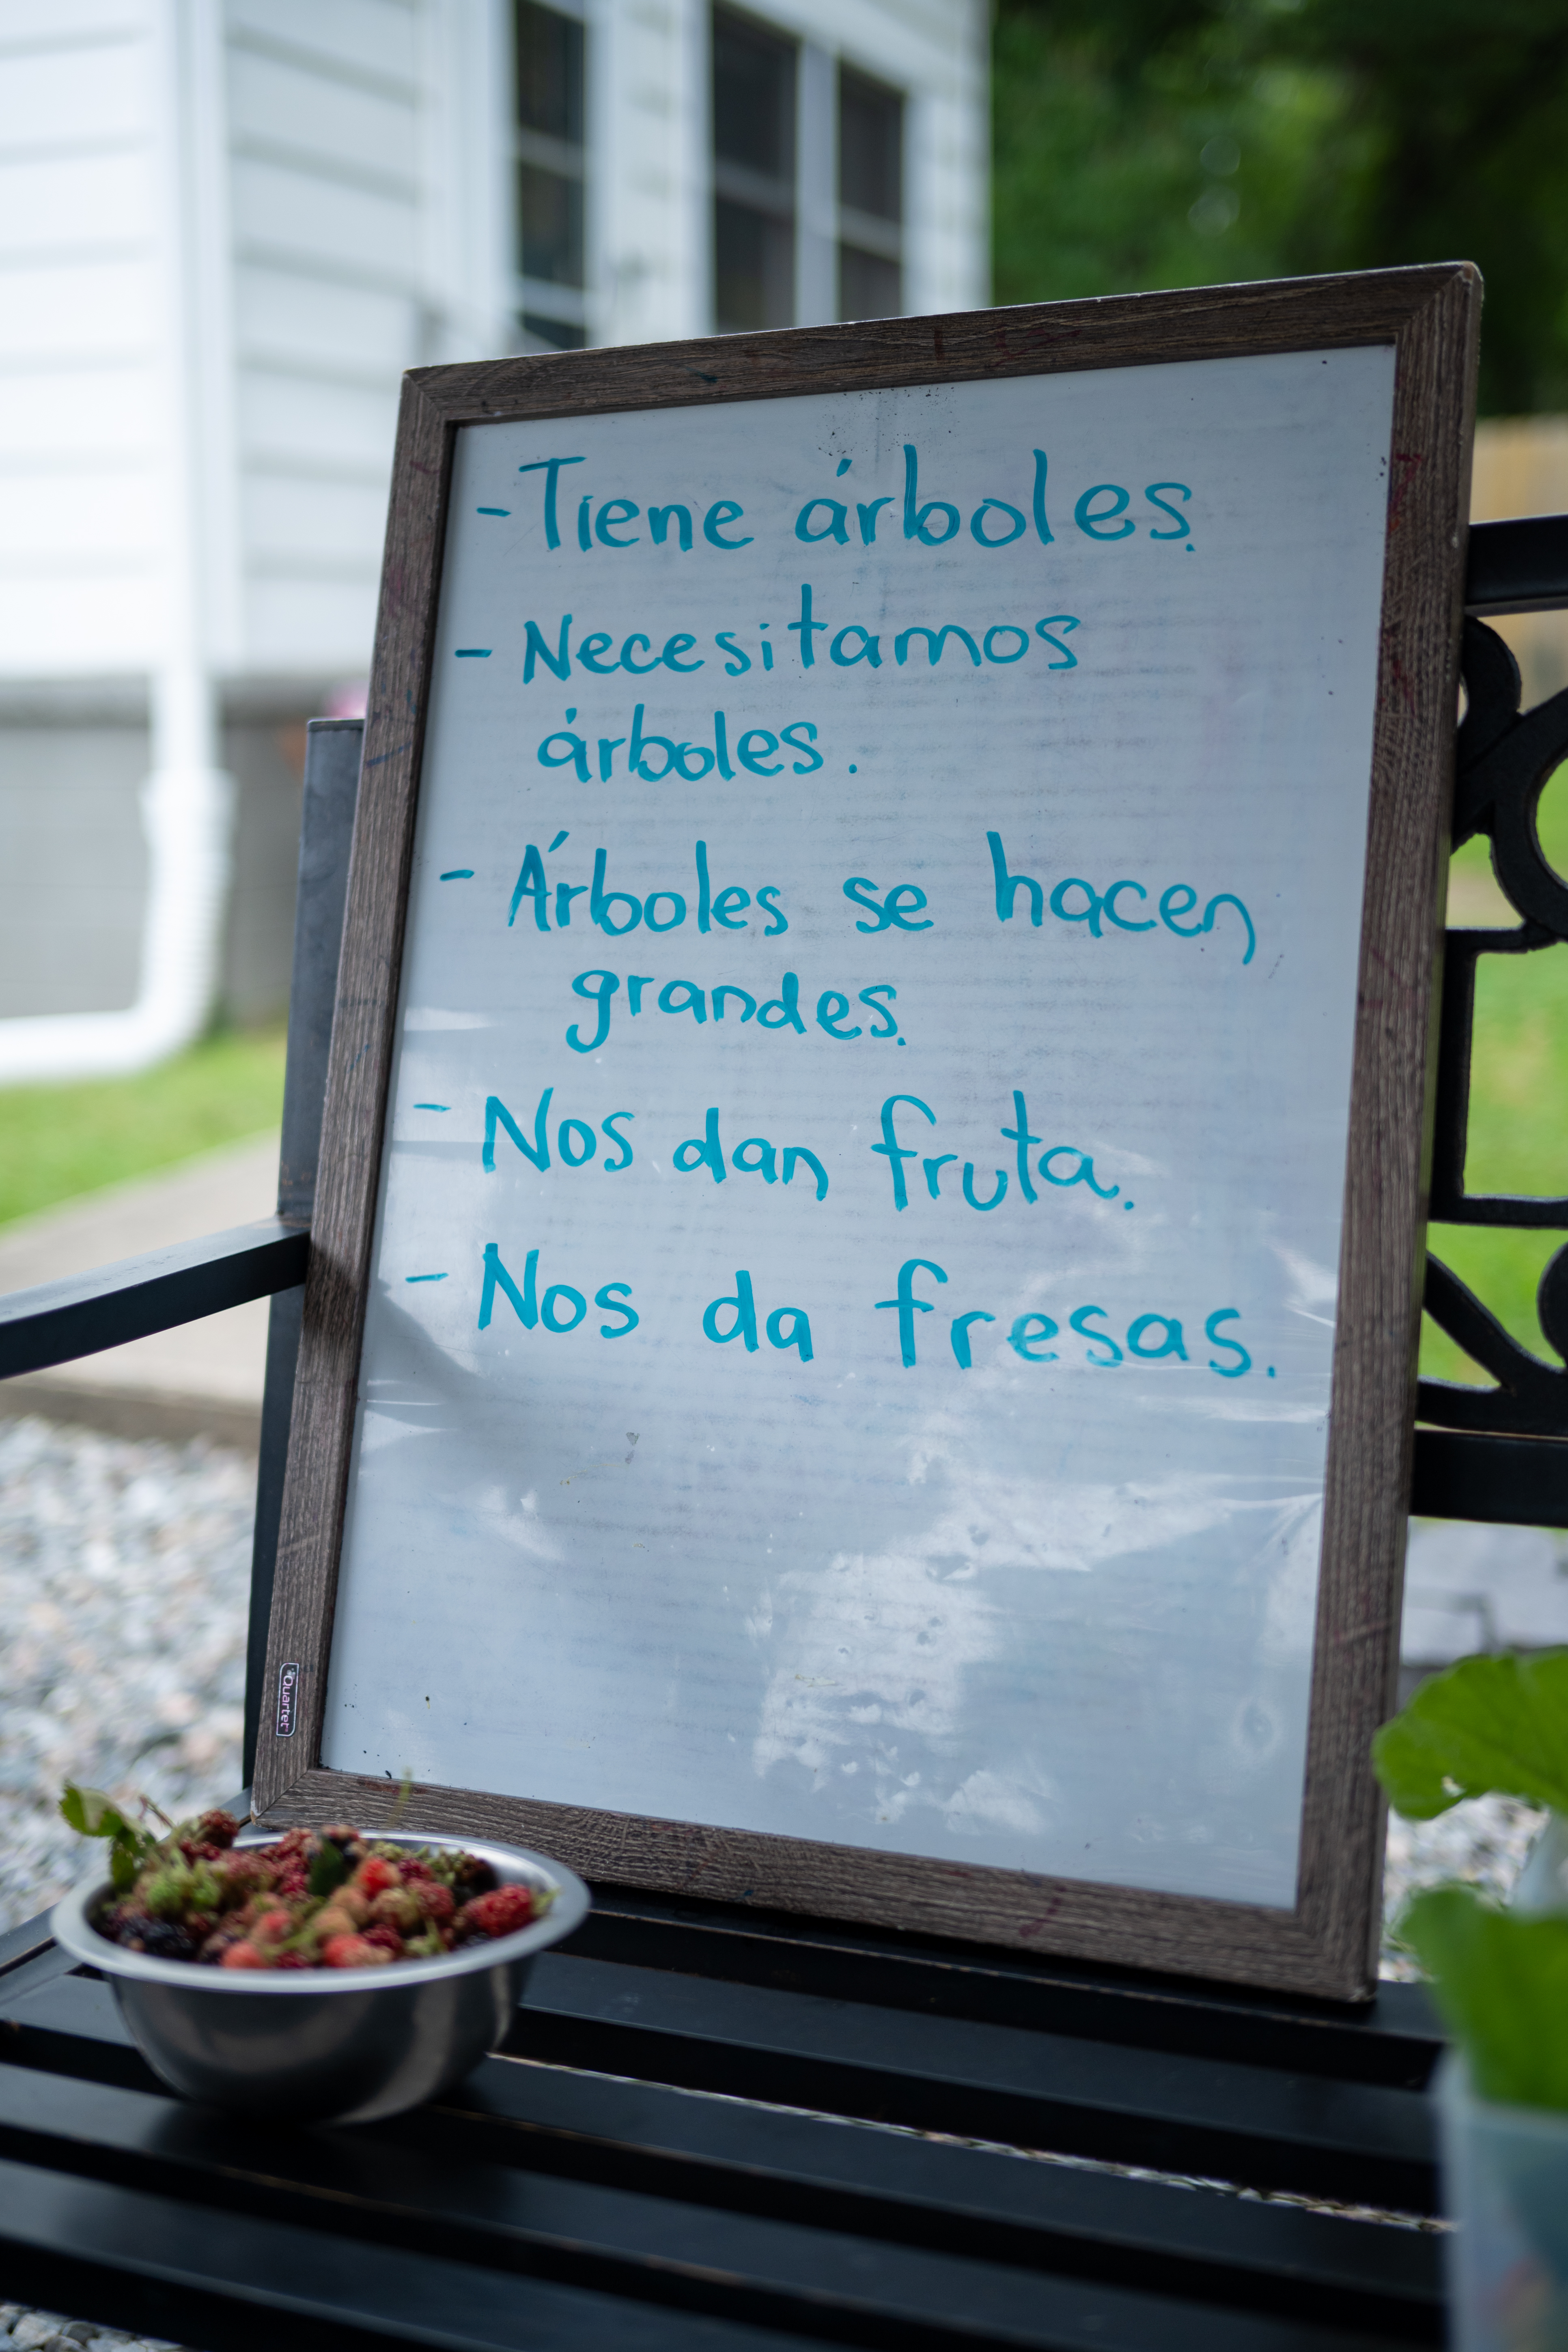 - Tiene árboles.
- Necesitamos
árboles.
- Árboles se hacen
grandes.
- Nos dan fruta.
- Nos da fresas.
Quartet